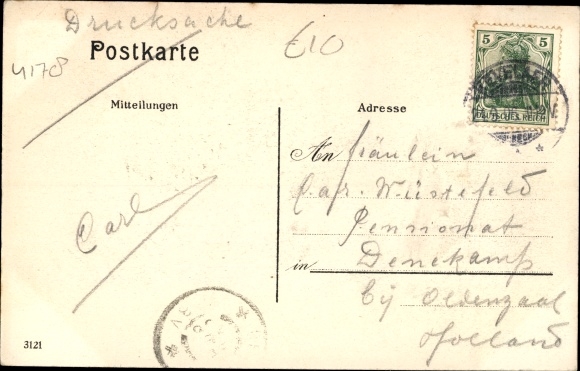 Drucksache
Postkarte
4178
€10
5 5
DEUTSCHES REICH
Mitteilungen
Adresse
An Fräulein
Car. Wüstefeld
Pensionat
in Denekamp
bij Oldenzaal
Holland
Carl
3121